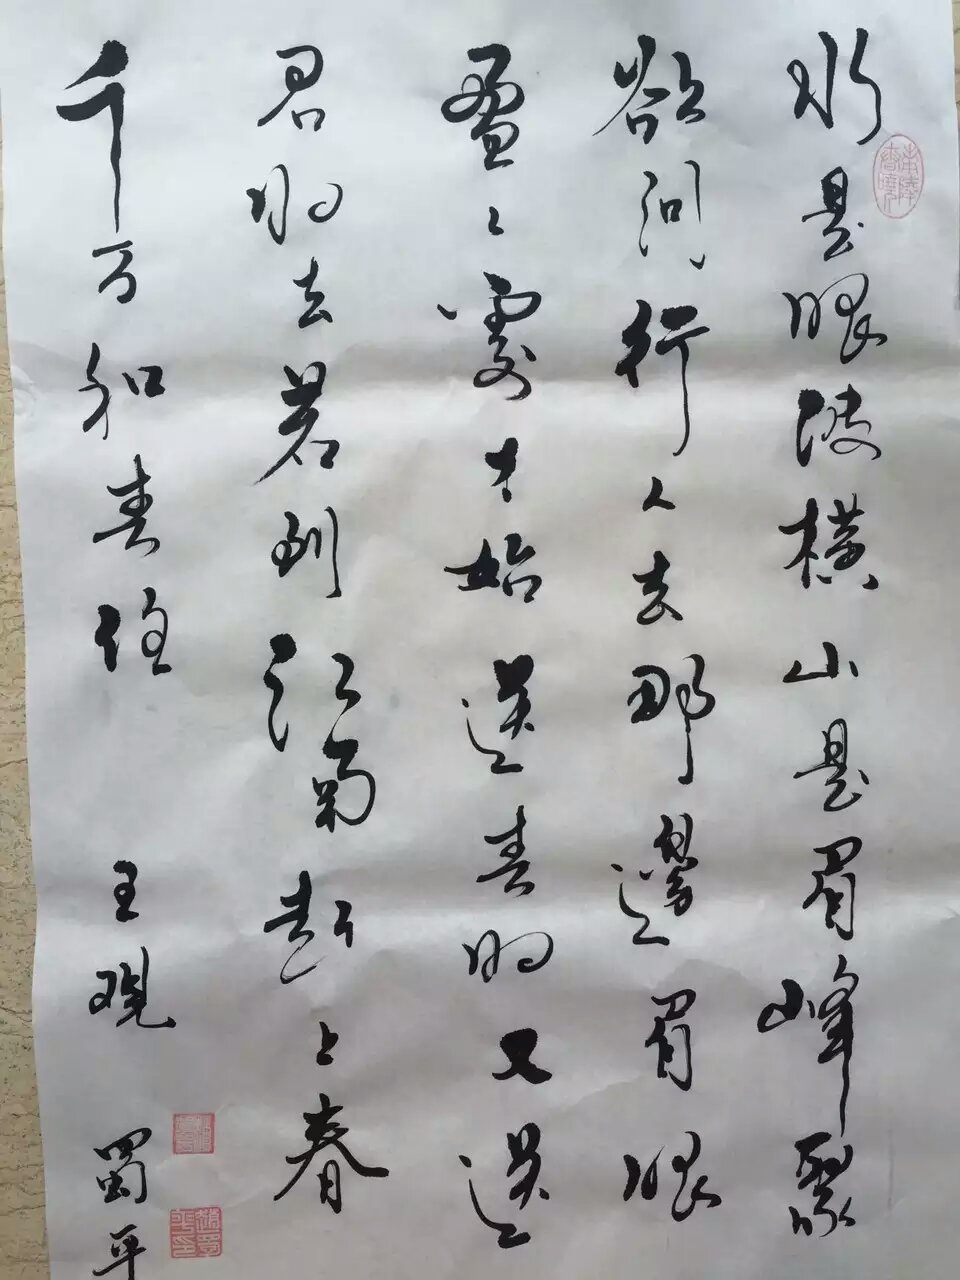 水是眼波横山是眉峰聚
欲问行人去那邊眉眼
盈々處才始送春归又送
君归去若到江南赶上春
千万和春住 王观 蜀平